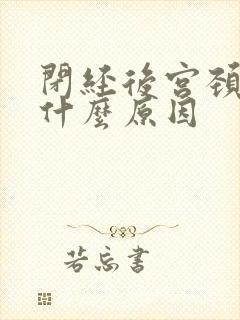 閉經後宮頸
什麼原因
若忘書